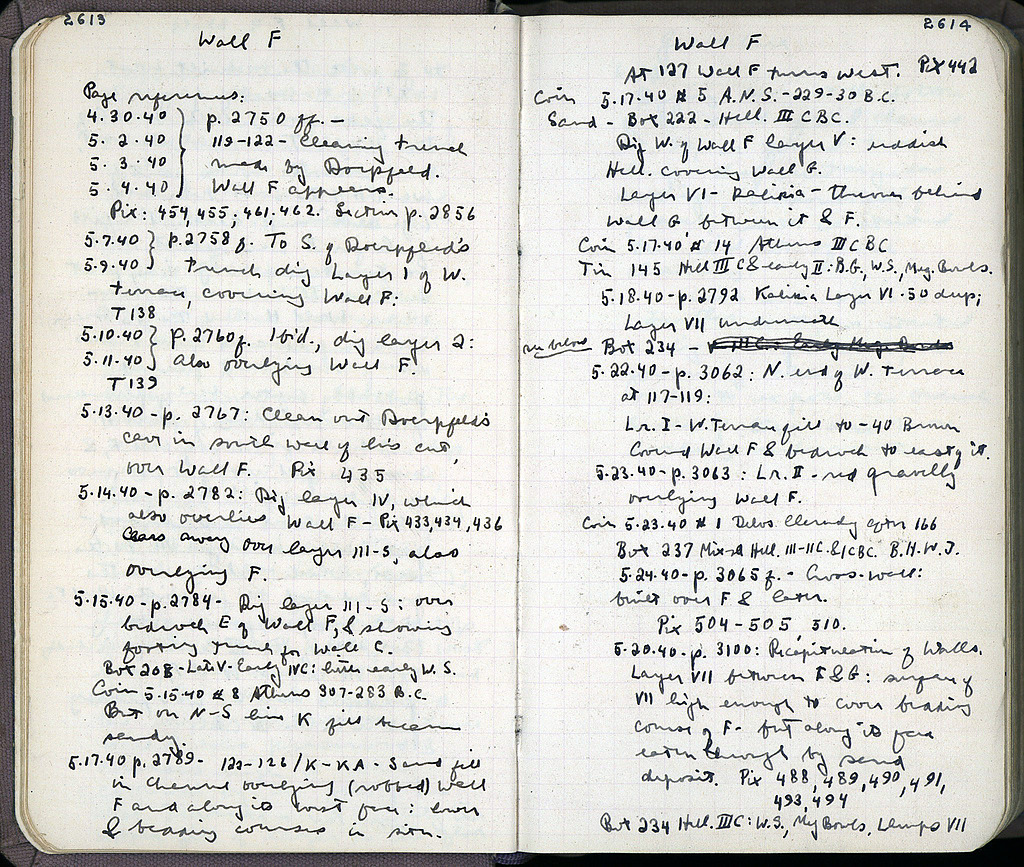 2613
Wall F
Page references:
4.30.40 p. 2750 ff. -
5. 2. 40 119-122- Cleaning trench
5. 3. 40 made by Doerpfeld.
5. 4. 40 Wall F appears.
Pix: 454, 455, 461, 462. Section p. 2856
5.7.40 p. 2758 f. To S. of Doerpfeld's
5.9.40 trench dig Layer I of W.
terrace, covering Wall F.
T 138
5.10.40 p. 2760 f. Ibid., dig layer 2:
5.11.40 also overlying Wall F.
T 139
5.13.40 - p. 2767: Clean out Doerpfeld's
cave in south wall of his cut,
over Wall F. Pix 435
5.14.40 - p. 2782: Dig layer IV, which
also overlies Wall F - Pix 433, 434, 436
Clear away over layer III-S, also
overlying F.
5.15.40 - p. 2784 - Dig layer III-S: over
bedrock E of Wall F, & showing
footing trench for Wall C.
Box 208 - Late V - Early IV C: little early W.S.
Coin 5.15.40 # 8 Athens 307-283 B.C.
But on N-S line K fill
sandy.
5.17.40 p. 2789 - 122-126/K-KA - Sand fill
in Channel overlying (robbed) Wall
F and along its west face: lower
& bedding courses in situ.
2614
Wall F
At 127 Wall F turns west. Pix 442
Coin 5.17.40 # 5 A.N.S. - 229-30 B.C.
Sand - Box 222 - Hell. III C BC.
Dig W. of Wall F layer V: reddish
Hell. covering Wall G.
Layer VI - Kalixia - thrown behind
Wall G between it & F.
Coin 5.17.40 # 14 Athens III C BC
Tin 145 Hell III C & early II: B.G., W.S., Meg. Bowls.
5.18.40 - p. 2792 Kalixia Layer VI - 50 deep;
Layer VII underneath
see below Box 234 -
5.22.40 - p. 3062: N. end of W. Terrace
at 117-119:
Lr. I - W. Terrace fill to -40 Brown
Cover Wall F & bedrock to east of it.
5.23.40 - p. 3063: Lr. II - red gravelly
overlying Wall F.
Coin 5.23.40 # 1 Delos Cleruchy after 166
Box 237 Mix-d Hell. III-II C. & I C BC. B.H.W.J.
5.24.40 - p. 3065 f. - Cross-wall:
built over F & later.
Pix 504 - 505, 510.
5.20.40 - p. 3100: Recapitulation of Walls.
Layer VII between F & G: surface of
VII high enough to cover bedding
course of F - but along its face
eaten through by sand
deposit. Pix 488, 489, 490, 491,
493, 494
Box 234 Hell. III C: W.S., Meg Bowls, Lamps VII